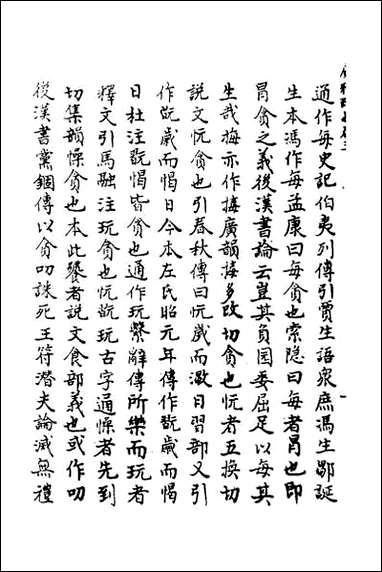 通作每史記伯夷列傳引賈生語衆庶馮生鄒誕
生本馮作每孟康曰每貪也索隱曰每者冒也即
冒貪之義後漢書論云豈其負园委屈足以每其
生哉挴亦作㨨廣韻㨨多改切貪也忨者五換切
說文忨貪也引春秋傳曰忨歲而㵣日習部又引
作翫歲而愒日今本左氏昭元年傳作翫歲而愒
日杜注翫愒皆貪也通作玩繫辭傳所樂而玩者
釋文引馬融注玩貪也忨翫玩古字通㦒者先到
切集韻㦒貪也本此饕者說文食部義也或作叨
後漢書黨錮傳以貪叨誅死王符潛夫論減無禮